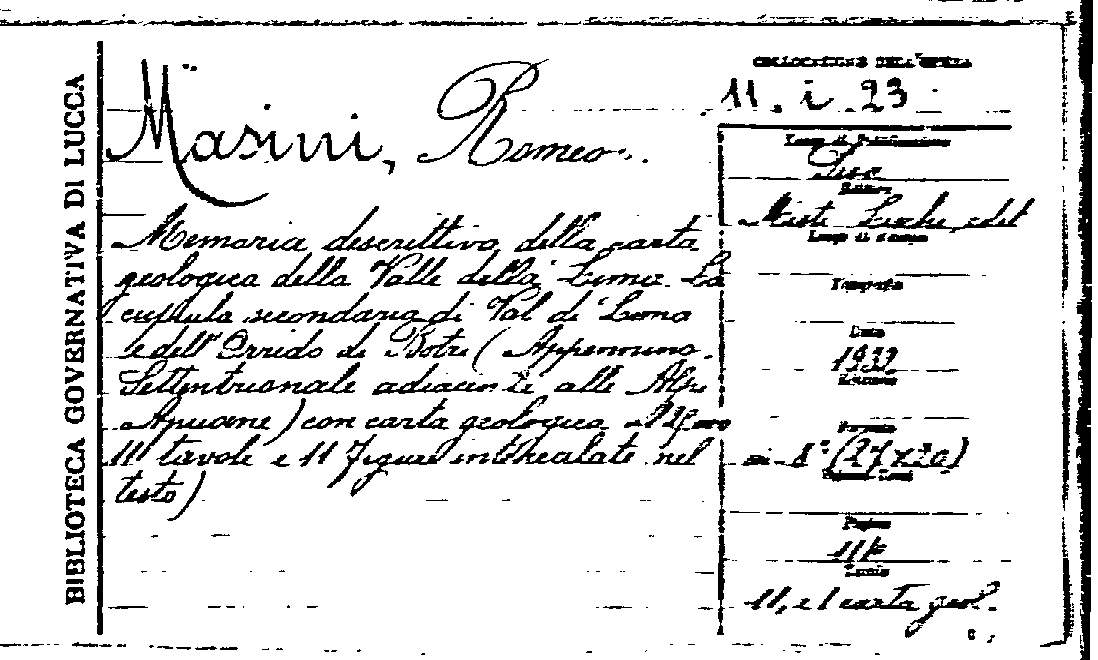 BIBLIOTECA GOVERNATIVA DI LUCCA
Masini, Romeo.
Memoria descrittiva della carta
geologica della Valle della Lima. La
cupula secondaria di Val di Lima
e dell'Orrido di Botri (Appennino
Settentrionale adiacente alle Alpi
Apuane) con carta geologica
11 tavole e 11 figure intercalate nel
testo)
COLLOCAZIONE DELL'OPERA
11. i. 23
Luogo di Pubblicazione
Editore
edit
Luogo di stampa
Tipografia
Data
Edizione
Formato
8° (27x20)
Pagine
Tavole
11, e 1 carta geol.